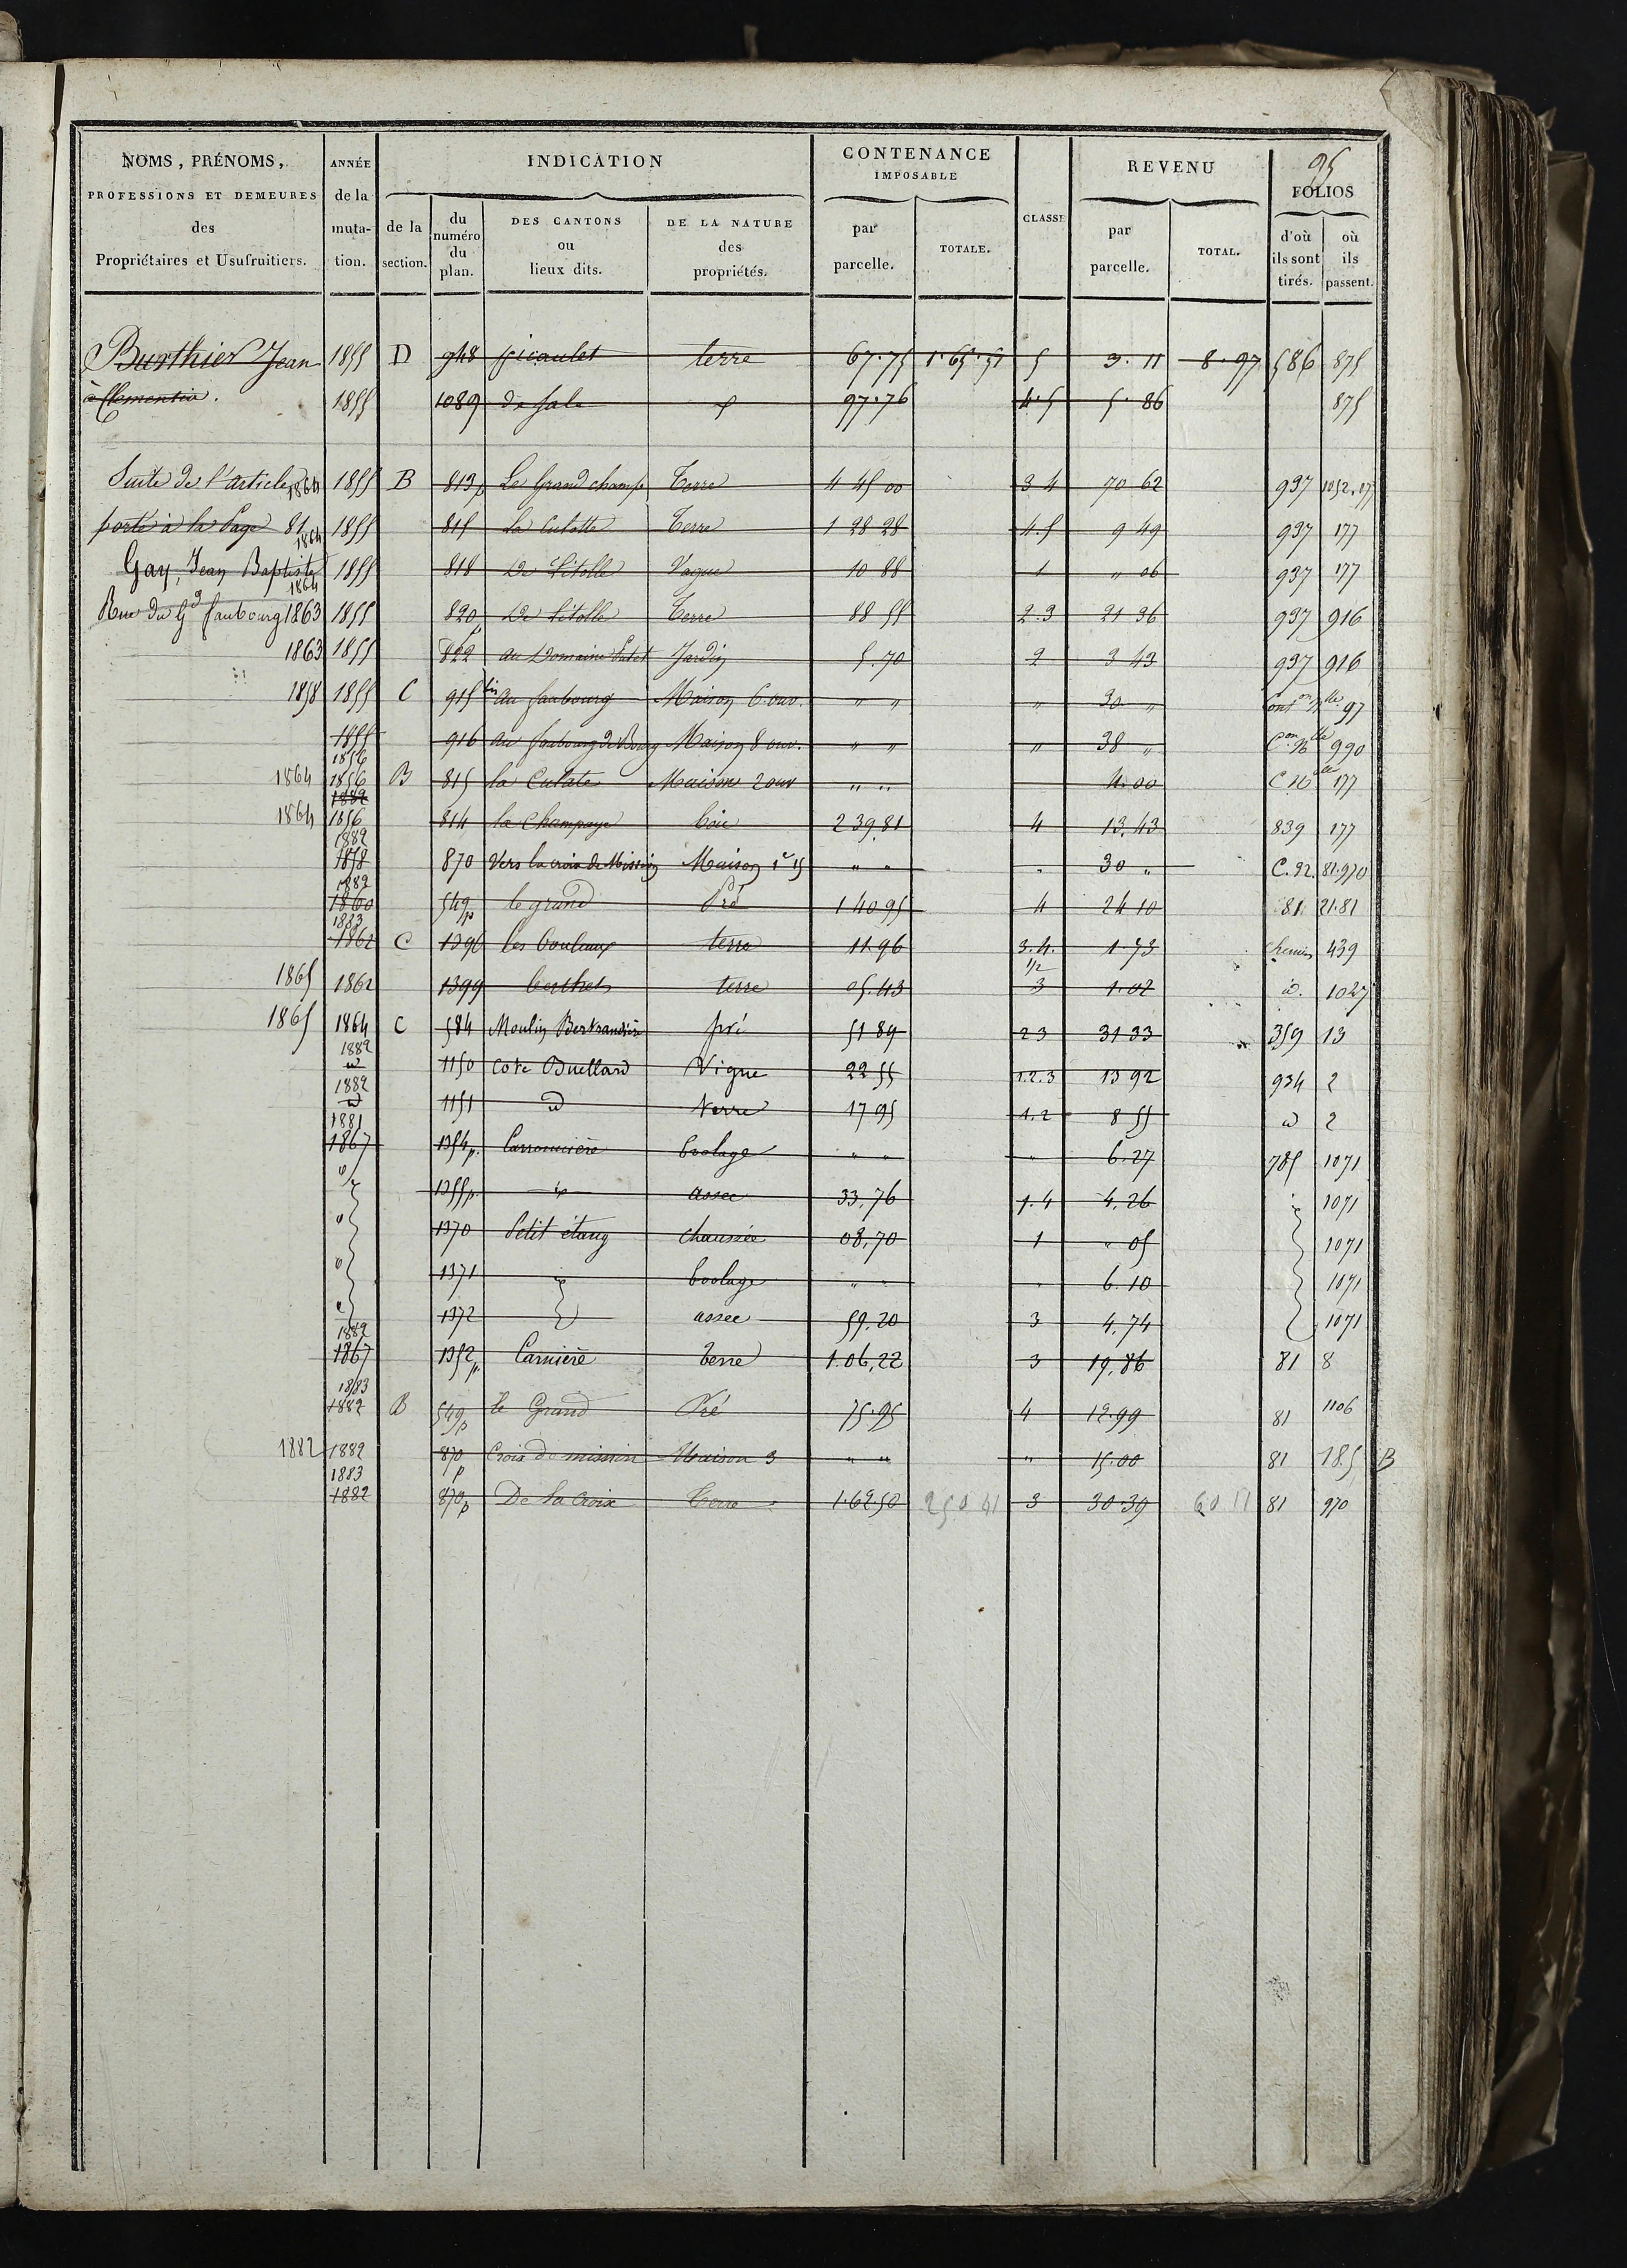 95
NOMS, PRÉNOMS, PROFESSIONS ET DEMEURES des Propriétaires et Usufruitiers.
ANNÉE de la muta- tion.
INDICATION
de la section.
du numéro du plan.
DES CANTONS ou lieux dits.
DE LA NATURE des propriétés.
CONTENANCE IMPOSABLE
par parcelle.
TOTALE.
CLASSE
REVENU
par parcelle.
TOTAL.
FOLIOS
d'où ils sont tirés.
où ils passent.
Burthier Jean 1855 D 948 picaulet terre 67.75 1.65.51 5 3.11 8.97 586 875
à Clementia. 1855 1089 de sale 97.76 4.5 5.86 875
Suite de l'article 1864 1855 B 813p Le Grand champ Terre 4 45 00 3 4 70 62 937 1052.177
porté à la Page 81 1864 1855 815 La Culatte Terre 1 28 28 4.5 9 49 937 177
Gay, Jean Baptiste 1864 1855 818 De Litolle Vague 10 88 1 " 06 937 177
Rue du Gd faubourg 1863 1855 820p De Litolle Terre 88 55 2.3 21 36 937 916
1863 1855 822 au Domaine Jardin 5.70 2 3 43 937 916
1858 1855 C 915 bis au faubourg Maison 6 ouv. " " " 30 " Conson Nlle 97
1855 1856 916 au faubourg de Bourg Maison 8 ouv. " " " 38 " Con Nlle 990
1864 1856 B 815 la Culate Maison 2 ouv " " 4.00 C Nlle 177
1882
1864 1856 814 la Champagne bois 2 39.81 4 13.43 839 177
1882
1858 870 Vers la croix de Mission Maison " " 30 " C. 92. 81.970
1882
1860 549p le grand Pré 1 40 95 4 24 10 81 21.81
1883
1862 C 1396 les bouleaux terre 11.96 3.4. 1.73 chemin 439
1/2
1865 1862 1399 berthets terre 05.43 3 1.02 id. 1027
1865 1864 C 584 Moulin Bertrandière pré 51 89 2 3 31 33 359 13
1882
id 1150 Cote Buellard Vigne 22 55 1.2.3 13 92 934 2
1882
id 1151 id terre 17 95 1.2 8 55 id 2
1881
1867 1354p. Carronnière évolage " " " 6.27 785 1071
1355p. assec 33,76 1.4 4.26 1071
1370 Petit étang chaussée 08,70 1 " 05 1071
1371 évolage " " " 6.10 1071
1372 assec 59.20 3 4.74 1071
1882
1867 1352p. Carnière terre 1.06,22 3 19,86 81 8
1883
1882 B 549p le Grand Pré 75.95 4 12.99 81 1106
1882 1882 870p Croix de mission Maison 3 " " " 15.00 81 18.5 B
1883
1882 870p De la Croix Terre 1.62.50 2 50 41 3 30.39 60 11 81 970